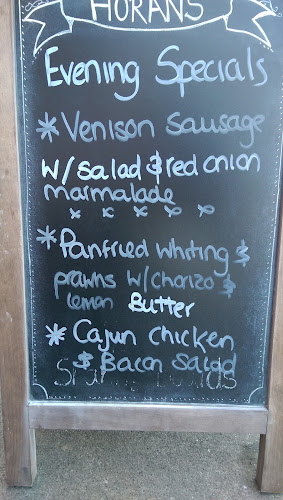 HORANS
Evening Specials
* Venison Sausage
w/salad & red onion
marmalade
x x x x x
* Panfried Whiting &
prawns w/chorizo &
lemon Butter
* Cajun Chicken
& Bacon Salad